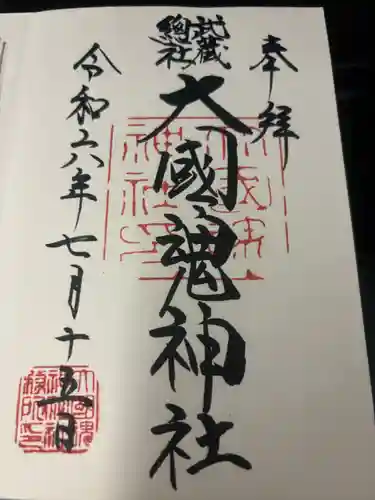 奉拝
武蔵
總社
大國魂神社
令和六年七月十五日